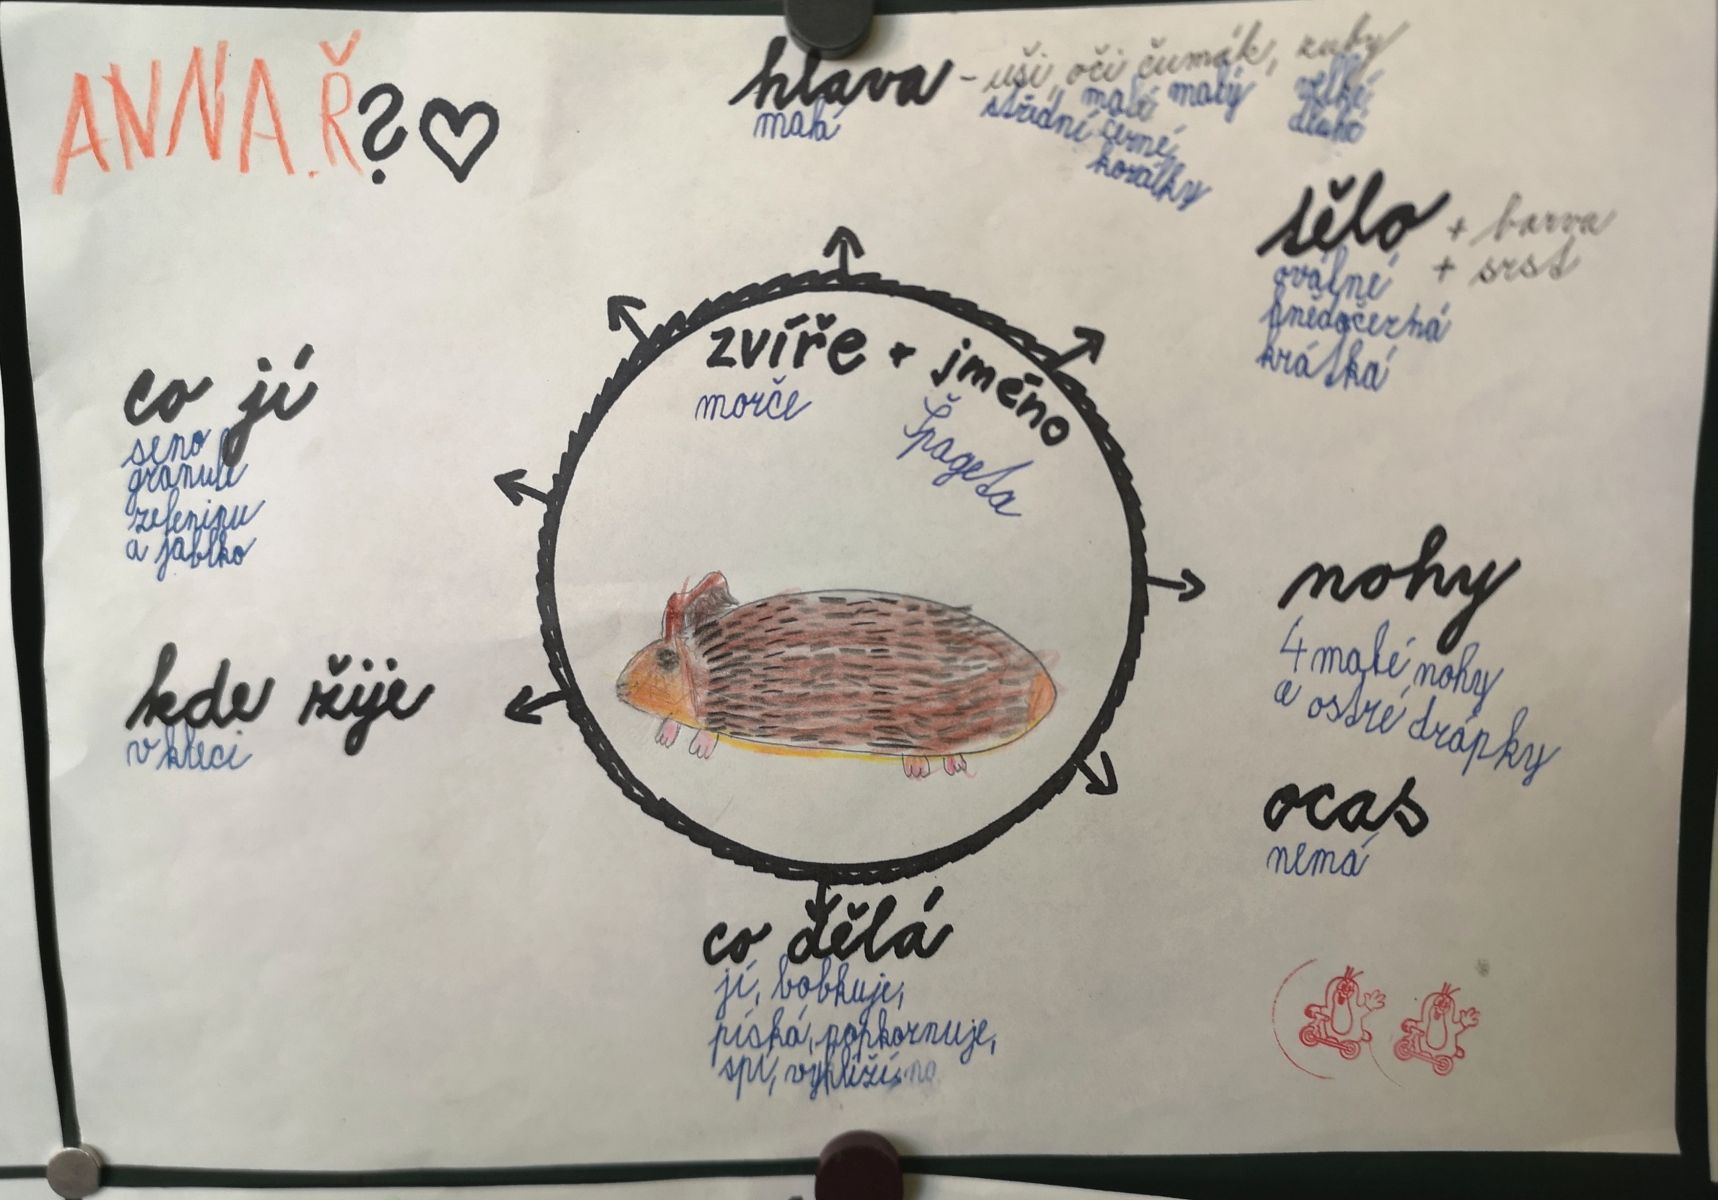 ANNA.Ř?
hlava - uši, oči čumák, zuby
malá
střední malé malý velké
černé, dlouhé
korálky
tělo + barva
+ srst
oválné
hnědočerná
krátká
zvíře + jméno
morče Špageta
co jí
seno
granule
zeleninu
a jablko
nohy
4 malé nohy
a ostré drápky
kde žije
v kleci
ocas
nemá
co dělá
jí, bobkuje,
píská, popkornuje,
spí,